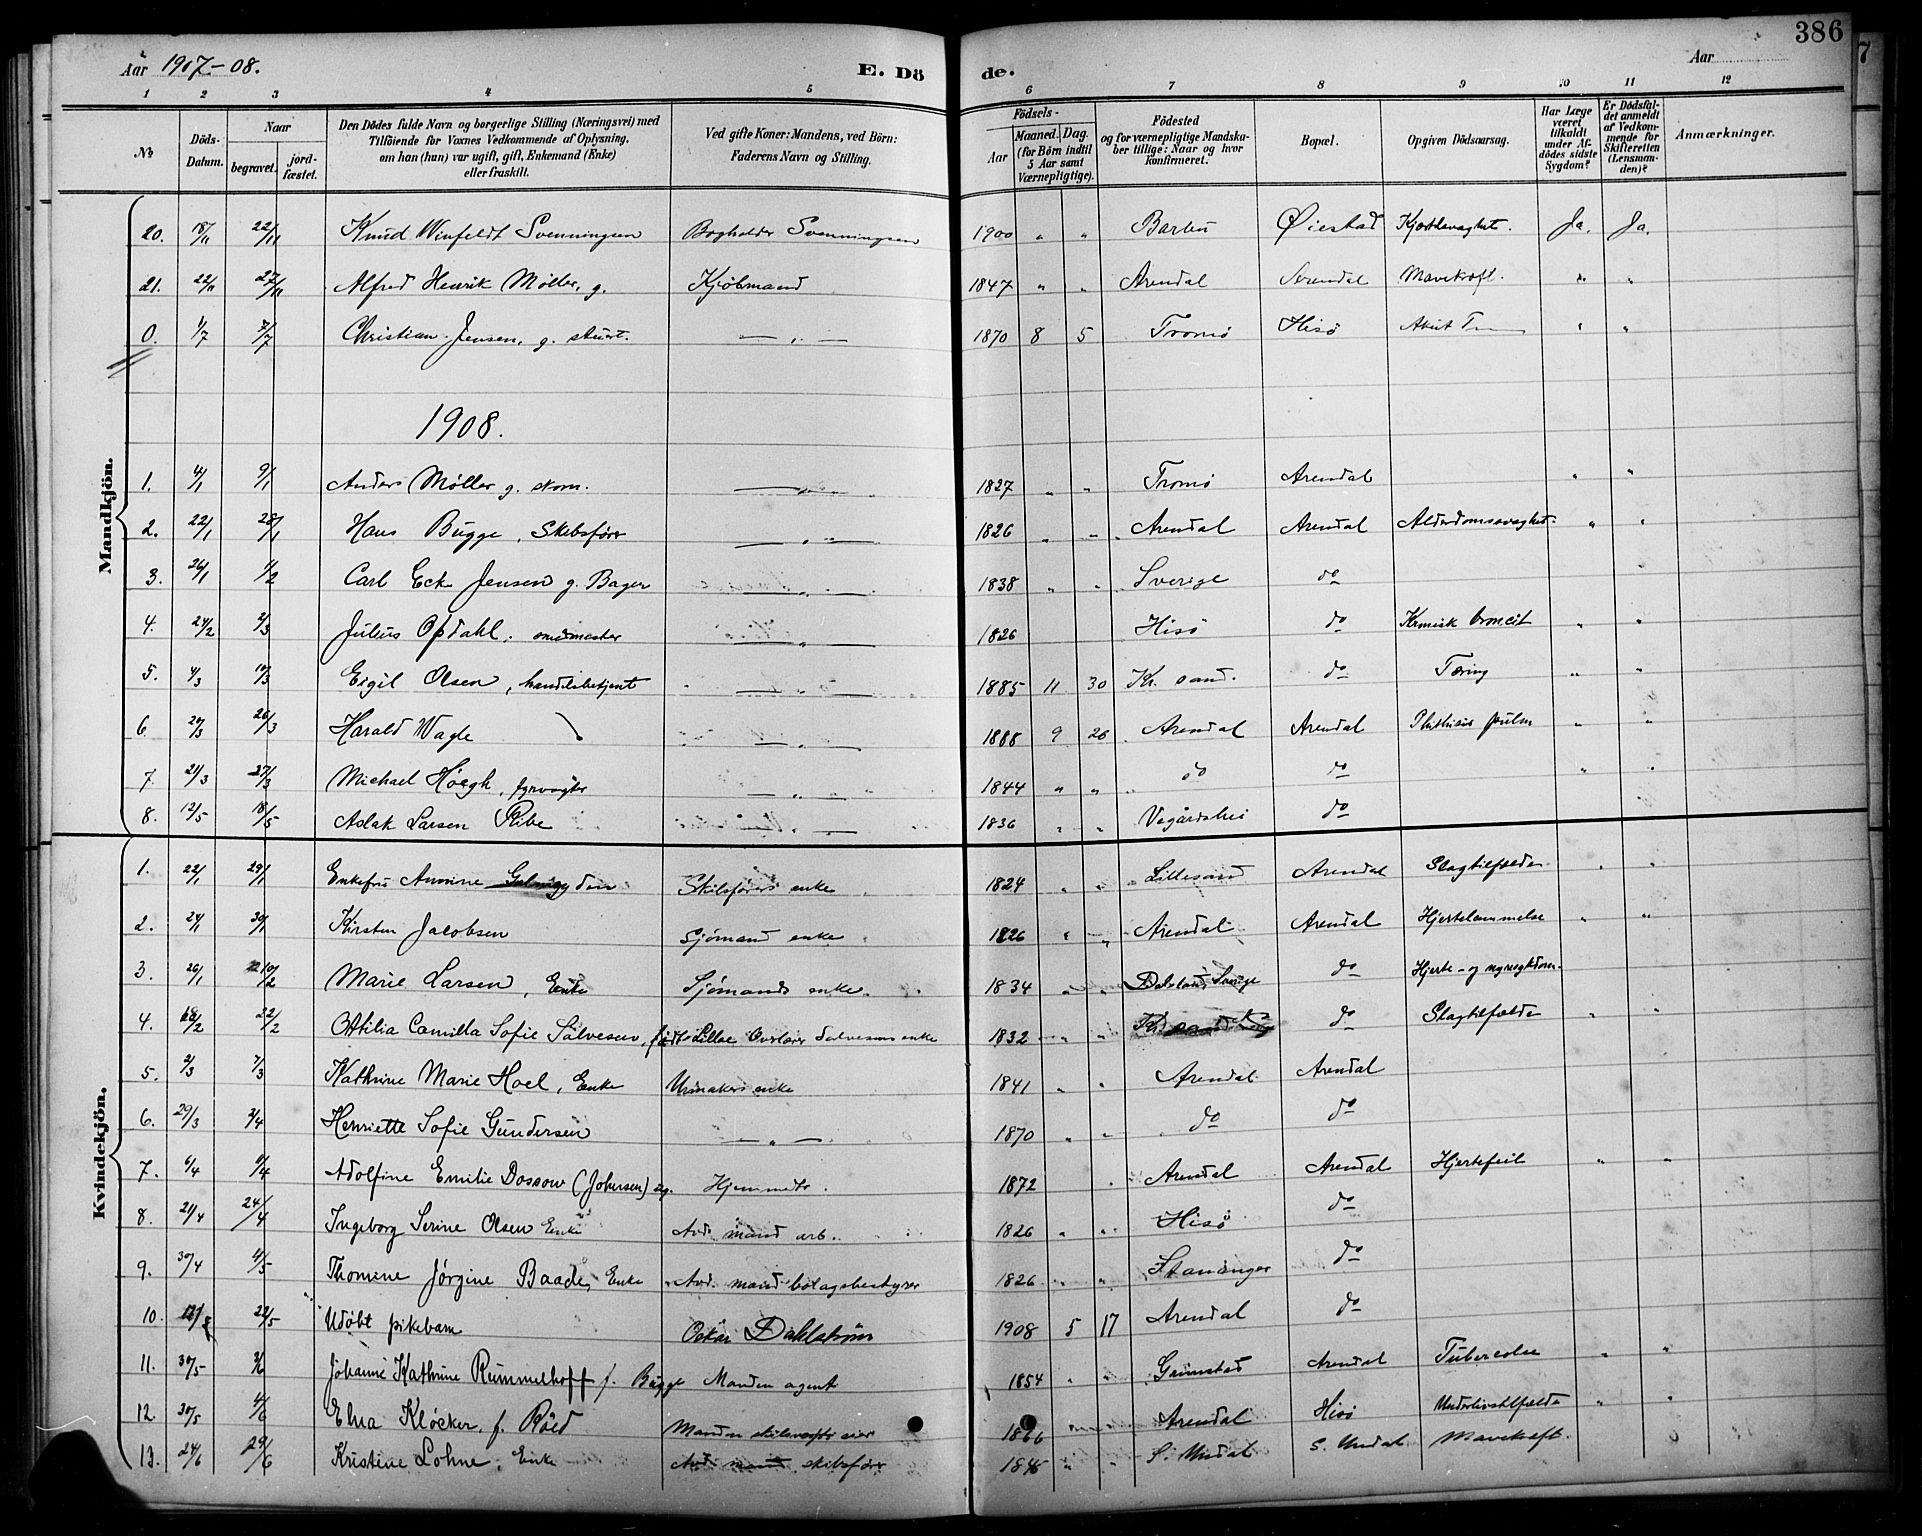 386
Aar 1907-08. E. Dö de. Aar
1 2 3 4 5 6 7 8 9 10 11 12
No. Döds-Datum. Naar begravet. jord-fæstet. Den Dödes fulde Navn og borgerlige Stilling (Næringsvei) med Tilföiende for Voxnes Vedkommende af Oplysning, om han (hun) var ugift, gift, Enkemand (Enke) eller fraskilt. Ved gifte Koner: Mandens, ved Börn: Faderens Navn og Stilling. Födsels- Aar Maaned. Dag. (for Börn indtil 5 Aar samt Værnepligtige). Födested og for værnepligtige Mandskaber tillige: Naar og hvor konfirmeret. Bopæl. Opgiven Dödsaarsag. Har Læge været tilkaldt under Afdödes sidste Sygdom? Er Dödsfaldet anmeldt af Vedkommende for Skifteretten (Lensmanden)? Anmærkninger.
Mandkjön.
20. 18/11 22/11 Knud Winfeldt Svenningsen Bogholder Svenningsen 1900 " " Barbu Øiestad Ja. Ja.
21. 22/11 27/11 Alfred Henrik Møller, g. Kjøbmand 1847 " " Arendal Arendal Mavekræft. " "
0. 1/7 7/7 Christian Jensen, g. stuert. — " — 1870 8 5 Tromø Hisö Akut " "
1908.
1. 4/1 9/1 Anders Møller g. skom. — " — 1827 " " Tromø Arendal " "
2. 22/1 28/1 Hans Bugge, Skibsfører — " — 1826 " " Arendal Arendal Alderdomssvaghed. " "
3. 26/1 1/2 Carl Eck Jensen g. Bager — " — 1838 " " Sverige do "
4. 24/2 2/3 Julius Opdahl, smedmester — " — 1826 Hisö do Kronisk broncit " "
5. 4/3 10/3 Eigil Olsen, handelsbetjent — " — 1885 11 30 Kr. sand. do Tæring " "
6 20/3 26/3 Harald Wagle — " — 1888 9 26 Arendal Arendal Phthisis pulm " "
7. 21/3 27/3 Michael Høegh, fyrvogter — " — 1844 " " do do " "
8. 12/5 18/5 Aslak Larsen Ribe — " — 1836 " " Vegårdshei do
Kvindekjön.
1. 22/1 29/1 Enkefru Annine Gyldin Skibsførers enke 1824 " " Lillesand Arendal Slagtilfælde " "
2. 24/1 30/1 Kirsten Jacobsen Sjømand enke 1826 " " Arendal Arendal Hjertelammelse " "
3. 26/1 10/2 Marie Larsen, Enke Sjømands enke. 1834 " " Dalsland, Sverige do Hjerte- og nyresykdom.
4. 18/2 22/2 Ottilia Camilla Sofie Salvesen, født Lilloe Overlærer Salvesens enke 1832 " " do Slagtilfælde " "
5. 2/3 7/3 Kathrine Marie Hoel, Enke Urmakers enke 1841 " " Arendal Arendal
6. 29/3 2/4 Henriette Sofie Gundersen — " — 1870 " " do do
7. 6/4 11/4 Adolfine Emilie Dossow (Johnsen) ug. Hjemmetr. 1872 " Arendal Arendal Hjertefeil " "
8. 21/4 24/4 Ingeborg Serine Olsen Enke Avd. mand arb. 1826 " " Hisö do
9. 30/4 4/5 Thomine Jørgine Baade, Enke Avd. mand bolagsbestyrer 1826 " " Stavanger do
10. 22/5 Udøbt pikebarn Oskar Dahlstrøm 1908 5 17 Arendal do
11. 30/5 3/6 Johanne Kathrine Rummelhoff f. Bugge Manden agent 1854 " " Grimstad Arendal Tuberculose " "
12. 30/5 4/6 Elna Klöcker, f. Röed Manden skibsværfts eier 1866 Arendal Hisö Underlivstilfælde " "
13. 24/6 29/6 Kristine Lohne, Enke Avd. mand skibsfører 1845 " " S. Undal S. Undal Mavekræft.